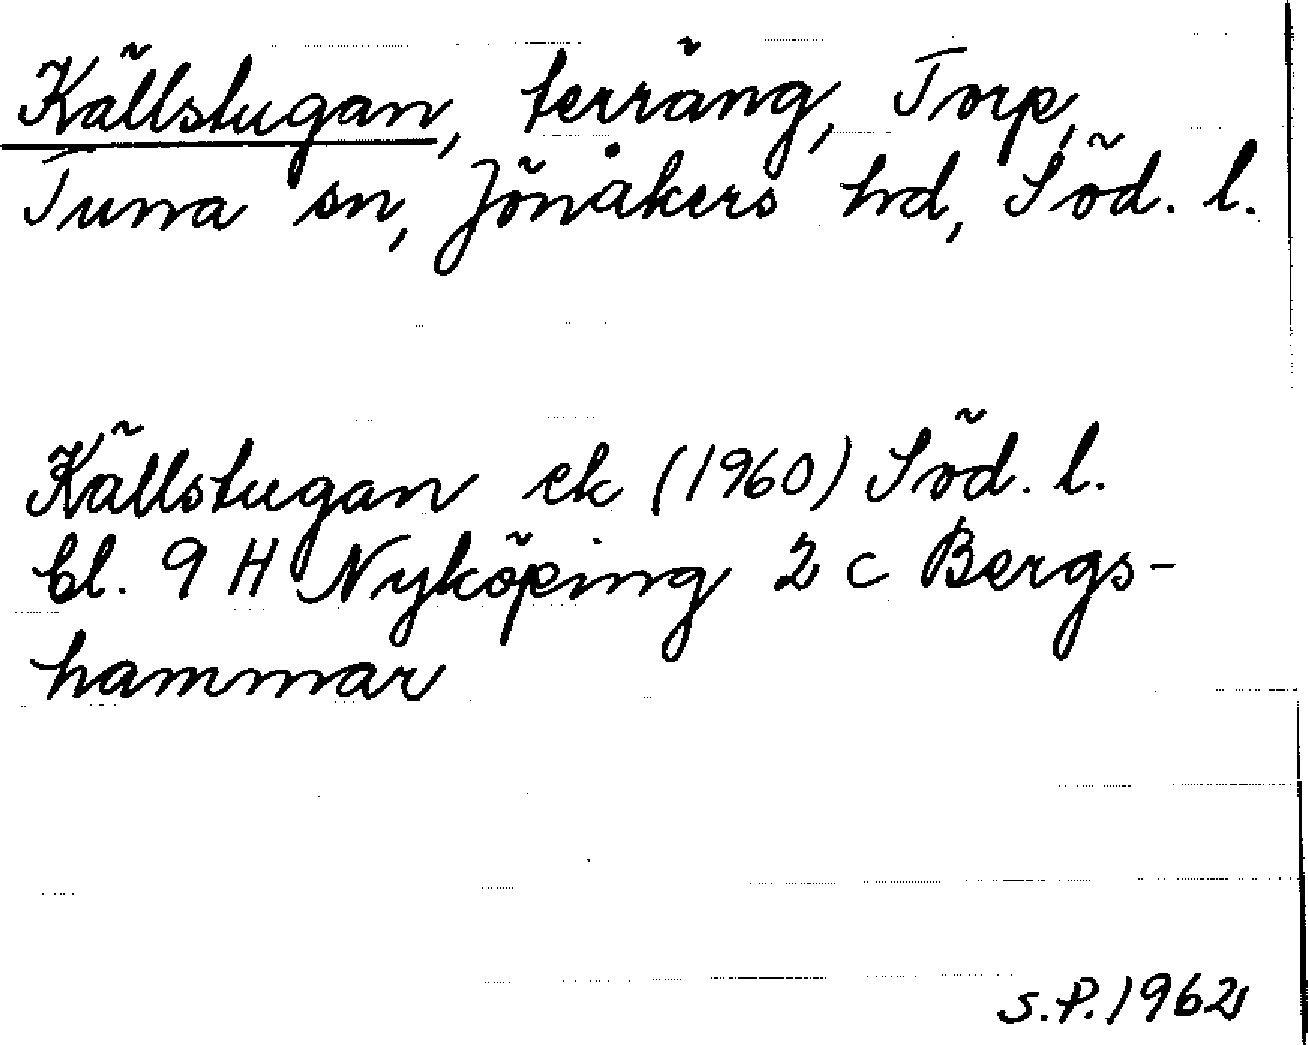 Källstugan, terräng, Torp,
Tuna sn, Jönåkers hd, Söd. l.
Källstugan ek (1960) Söd. l.
bl. 9 H Nyköping 2 c Bergs-
hammar
S.P. 1962